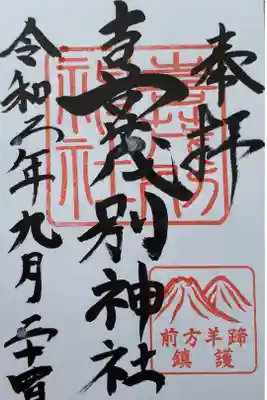 奉拝
喜茂別神社
令和六年九月二十四日
喜茂別
神社
前方羊蹄
鎮護